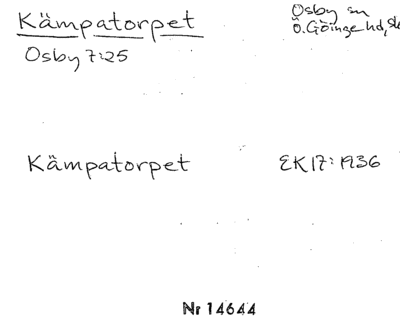 Kämpatorpet
Osby sn
Ö. Göinge hd, Sk
Osby 7:25
Kämpatorpet EK 17: 1936
Nr 14644